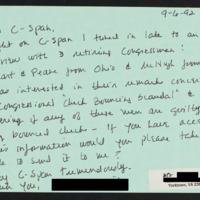 9-6-92
C-Span,
ght on C-Span I tuned in late to an
view with 3 retiring Congressmen!
& Pease from Ohio & McHugh from
as interested in their remarks concern
ongressional Check Bouncing Scandal" &
ering if any of these men are guilty
bounced check - If you have acces
is information would you please take
to send it to me?
C-Span tremendously.
you,
Yorktown, VA